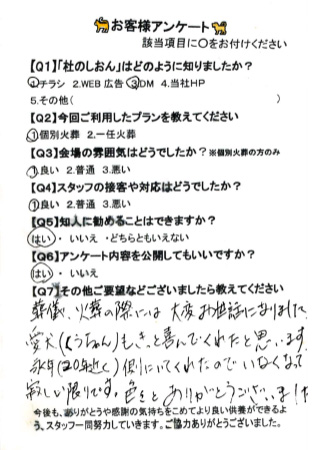 お客様アンケート
該当項目に〇をお付けください
【Q1】「杜のしおん」はどのように知りましたか？
1チラシ 2.WEB広告 3DM 4.当社HP
5.その他( )
【Q2】今回ご利用したプランを教えてください
1個別火葬 2.一任火葬
【Q3】会場の雰囲気はどうでしたか？※個別火葬の方のみ
1良い 2.普通 3.悪い
【Q4】スタッフの接客や対応はどうでしたか？
1良い 2.普通 3.悪い
【Q5】知人に勧めることはできますか？
はい・ いいえ ・どちらともいえない
【Q6】アンケート内容を公開してもいいですか？
はい・ いいえ
【Q7】その他ご要望などございましたら教えてください
葬儀、火葬の際には 大変お世話になりました
愛犬 もきっと喜んでくれたと思います
永年(20年近く)側にいてくれたのでいなくなって
寂しい限りです。色々とありがとうございました
今後も、ありがとうや感謝の気持ちをこめてより良い供養ができるよ
う、スタッフ一同努力していきます。ご協力ありがとうございました。